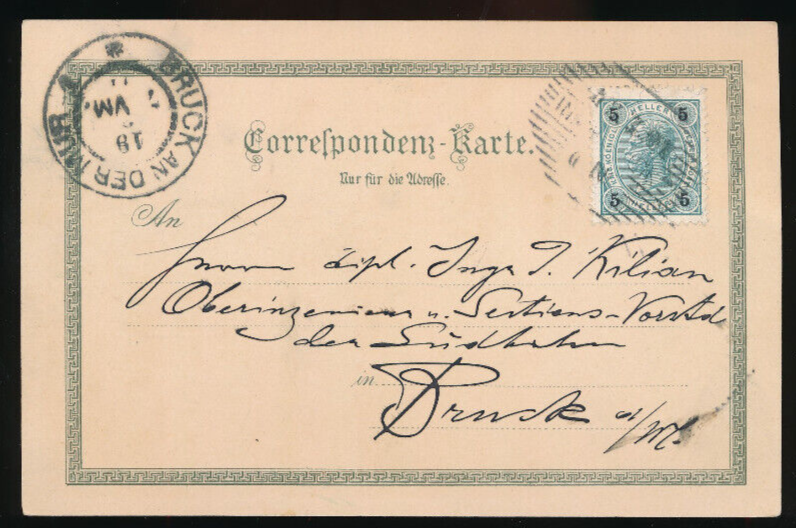 BRUCK AN DER MUR
VM.
Correspondenz-Karte.
5 HELLER 5
5 5
Nur für die Adresse.
An
Herrn Dipl. Ing. J. Kilian
Oberingenieur u. Sections-Vorstd
der Südbahn
in Bruck a/M.